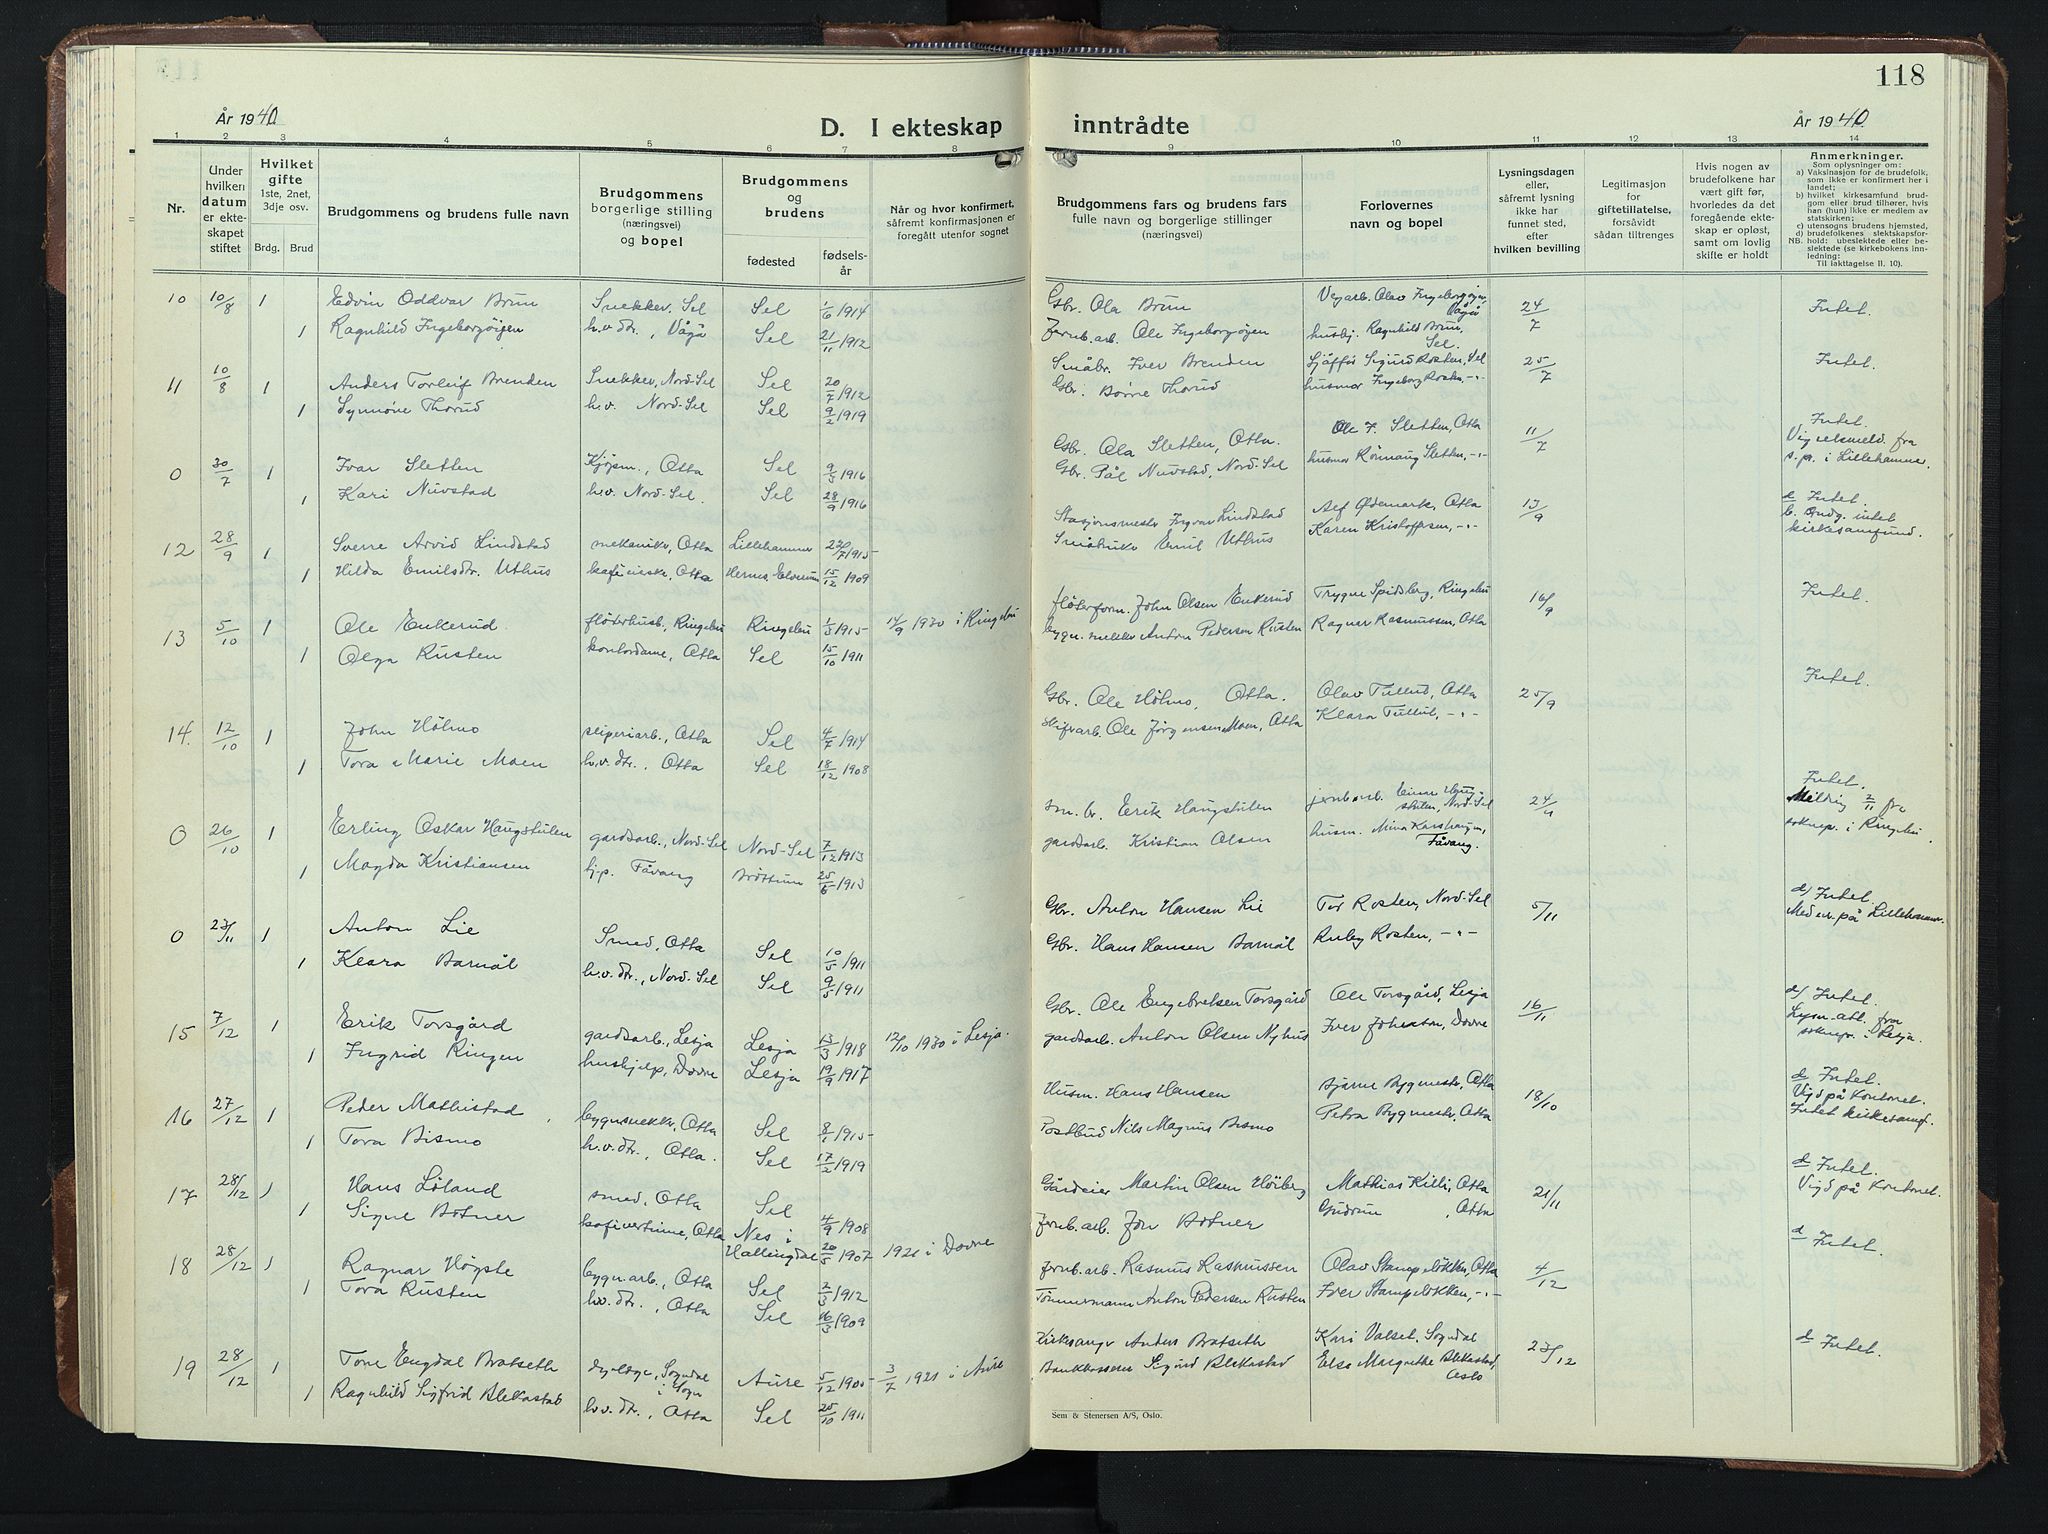 118
År 1940
D. I ekteskap inntrådte
År 1940
1 2 3 4 5 6 7 8 9 10 11 12 13 14
Nr.
Under hvilken datum er ekteskapet stiftet
Hvilket gifte 1ste, 2net, 3dje osv.
Brdg. Brud
Brudgommens og brudens fulle navn
Brudgommens borgerlige stilling (næringsvei) og bopel
Brudgommens og brudens
fødested fødselsår
Når og hvor konfirmert, såfremt konfirmasjonen er foregått utenfor sognet
Brudgommens fars og brudens fars fulle navn og borgerlige stillinger (næringsvei)
Forlovernes navn og bopel
Lysningsdagen eller, såfremt lysning ikke har funnet sted, efter hvilken bevilling
Legitimasjon for giftetillatelse, forsåvidt sådan tiltrenges
Hvis nogen av brudefolkene har vært gift før, hvorledes da det foregående ekteskap er opløst, samt om lovlig skifte er holdt
Anmerkninger.
Som oplysninger om:
a) Vaksinasjon for de brudefolk, som ikke er konfirmert her i landet;
b) hvilket kirkesamfund brudgom eller brud tilhører, hvis han (hun) ikke er medlem av statskirken;
c) utensogns brudens hjemsted,
d) brudefolkenes slektskapsforhold: ubeslektede eller beslektede (se kirkebokens innledning:
NB. Til iakttagelse II, 10).
10 10/8 1 Edvin Oddvar Brun Snekker, Sel Sel 1/6 1914 Gbr. Ola Brun Vegarb. Olav Ingeborgøien, Vågå 24/7 Intet.
1 Ragnhild Ingeborgøien h.v. dtr., Vågå Sel 21/11 1912 Jernb.arb. Ole Ingeborgøien husbj. Ragnhild Brun, Sel.
11 10/8 1 Anders Torleif Brenden Snekker, Nord-Sel Sel 20/7 1912 Småbr. Iver Brenden Sjåfför Sigurd Rosten, Sel 25/7 Intet.
1 Synnöve Thorud h.v. Nord-Sel Sel 9/2 1919 Gbr. Börre Thorud husmor Ingeborg Rosten, -"-
0 30/7 1 Ivar Sletten Kjøpm., Otta Sel 9/3 1916 Gbr. Ola Sletten, Otta. Ole J. Sletten, Otta 11/7 Intet. Vigselsmeld. fra s.pr. i Lillehammer.
1 Kari Nuvstad h.v. Nord-Sel. Sel 28/9 1916 Gbr. Pål Nuvstad, Nord-Sel husmor Rönnaug Sletten, -"-
12 28/9 1 Sverre Arvid Lindstad mekaniker, Otta Lillehammer 22/7 1915 Stasjonsmester Ingvar Lindstad Alf Ødemark, Otta 13/9 d Intet. b. Brudg. intet kirkesamfund.
1 Hilda Emilsdtr. Uthus kaféeierske, Otta Hernes, Elverum 15/12 1909 Småbruker Emil Uthus Karen Kristoffersen, -"-
13 5/10 1 Ole Enkerud fløterhusb., Ringebu Ringebu 1/3 1915 14/9 1930 i Ringebu fløterform. John Olsen Enkerud Trygve Spidsberg, Ringebu 16/9 Intet.
1 Olga Rusten kontordame, Otta Sel 15/10 1911 bygn.snekker Anton Pedersen Rusten Ragnar Rasmussen, Otta
14. 12/10 1 John Hölmo sliperiarb., Otta Sel 4/7 1914 Gbr. Ole Hölmo, Otta. Olav Tullud, Otta 25/9 Intet.
1 Tora Marie Moen h.v. dtr., Otta Sel 18/12 1908 Skifrarb. Ole Jörgensen Moen, Otta Klara Tullud, -"-
0 26/10 1 Erling Oskar Haugstulen gardsarb., Nord-Sel Nord-Sel 7/12 1913 sm.br. Erik Haugstulen jernb.arb. Einar Haugstulen, Nord-Sel 24/9 Intet. Melding 2/11 fra soknepr. i Ringebu
1 Magda Kristiansen hj.p. Fåvang Bröttum 25/6 1913 gardsarb. Kristian Olsen husm. Mina Karshaugen, Fåvang.
0 23/11 1 Anton Lie Smed, Otta Sel 10/5 1911 Gbr. Anton Hansen Lie Tor Rosten, Nord-Sel 5/11 d) Intet.
1 Klara Barnål h.v. dtr., Nord-Sel Sel 9/5 1911 Gbr. Hans Hansen Barnål Ruby Rosten, -"-
15 7/12 1 Erik Torsgård gardsarb., Lesja Lesja 13/3 1918 12/10 1930 i Lesja. Gbr. Ole Engebretsen Torsgård Ole Torsgård, Lesja 16/11 d) Intet. Lysn.att. fra soknepr. i Lesja.
1 Ingrid Ringen hushjelp, Dovre Lesja 19/9 1917 gardsarb. Anton Olsen Nyhus Iver Johnson, Dovre
16 27/12 1 Peder Mathistad bygn.snekker, Otta Sel 8/1 1915 Husm. Hans Hansen Bjarne Bygmestr, Otta 18/10 d Intet. Vigd på Kontoret. Intet kirkesamf.
1 Tora Bismo h.v. dtr., Otta. Sel 17/2 1919 Postbud Nils Magnus Bismo Petra Bygmestr, Otta
17 28/12 1 Hans Löland smed, Otta Sel 4/9 1908 Gårdeier Martin Olsen Höiberg Mathias Killi, Otta 21/11 d Intet. Vigd på Kontoret.
1 Signe Botner kafévertinne, Otta Nes i Hallingdal 20/5 1907 1921 i Dovre Jernb.arb. Jon Botner Gudrun , Otta
18 28/12 1 Ragnar Högste bygn.arb., Otta Sel 2/3 1912 Jernb.arb. Rasmus Rasmussen Olav Stampeløkken, Otta 4/12 d Intet.
1 Tora Rusten h.v. dtr., Otta Sel 16/3 1909 Tömmermann Anton Pedersen Rusten Iver Stampeløkken, -"-
19 28/12 1 Tore Engdal Bratseth dyrlæge, Sogndal i Sogn Aure 5/12 1905 3/7 1921 i Aure Kirkesanger Anders Bratseth Kari Valset, Sogndal 23/12 d Intet.
1 Ragnhild Sigfrid Blekastad h.v. dtr., Otta Sel 25/10 1911 Bankkasserer Sigurd Blekastad Else Margrethe Blekastad, Oslo
Sem & Stenersen A/S, Oslo.